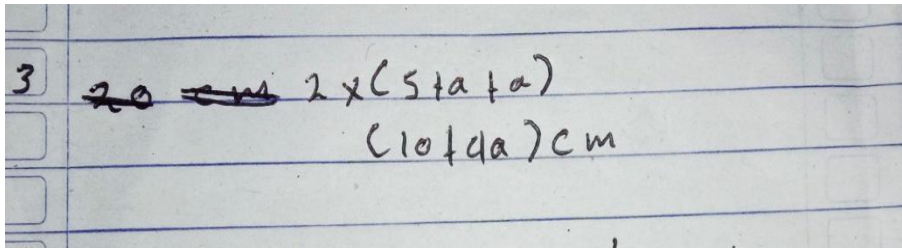 3 20 cm 2 x (5+a+a)
(10+4a) cm